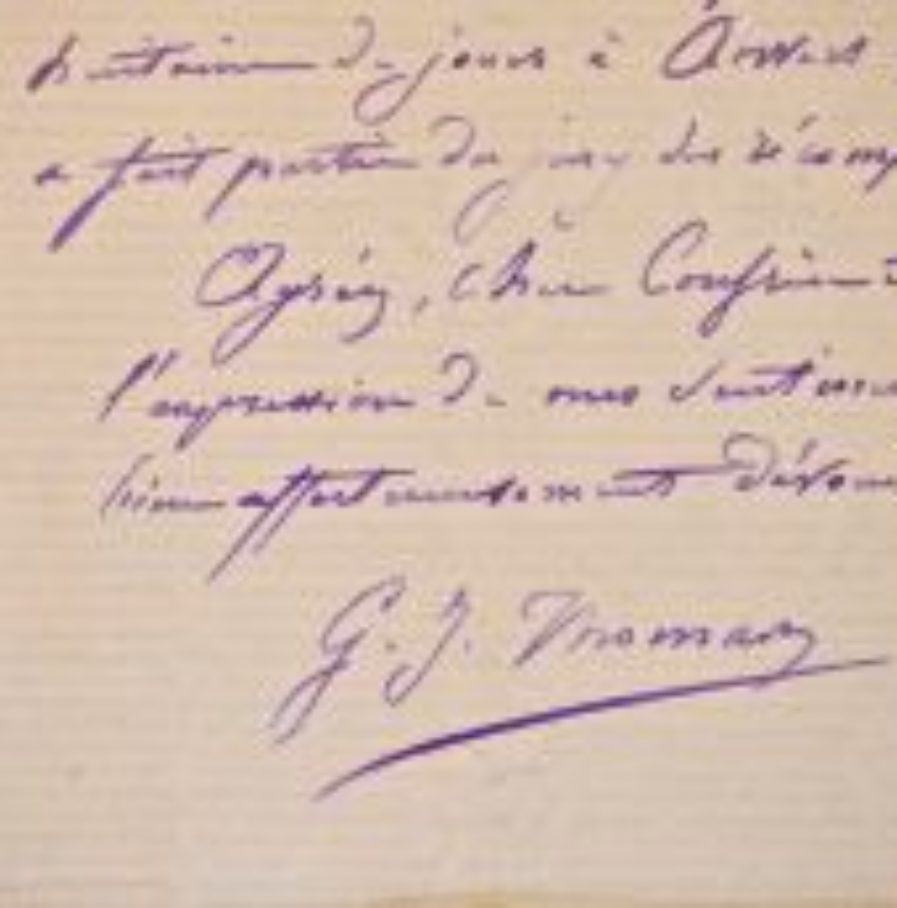 huitaine de jours à Anvers
a fait partie du jury des récomp
Agréez, cher Confrère
l'expression de mes sentimen
bien affectueusement dévou
G. J.